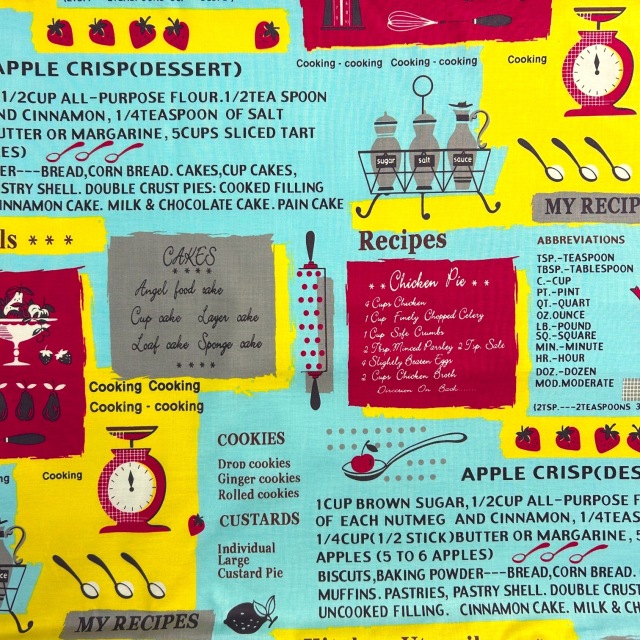 APPLE CRISP(DESSERT)
1/2CUP ALL-PURPOSE FLOUR.1/2TEA SPOON
ND CINNAMON, 1/4TEASPOON OF SALT
UTTER OR MARGARINE, 5CUPS SLICED TART
ES)
ER---BREAD,CORN BREAD. CAKES,CUP CAKES,
STRY SHELL. DOUBLE CRUST PIES: COOKED FILLING
INNAMON CAKE. MILK & CHOCOLATE CAKE. PAIN CAKE
Cooking - cooking Cooking - cooking
Cooking
sugar salt sauce
MY RECIP
ls ***
CAKES
****
Angel food cake
Cup cake Layer cake
Loaf cake Sponge cake
****
Recipes
** Chicken Pie **
4 Cups Chicken
1 Cup Finely Chopped Celery
1 Cup Soft Crumbs
2 Tbsp. Minced Parsley 2 Tsp. Salt
4 Slightly Beaten Eggs
2 Cups Chicken Broth
Direction On Back......
ABBREVIATIONS
TSP.-TEASPOON
TBSP.-TABLESPOON
C.-CUP
PT.-PINT
QT.-QUART
OZ.OUNCE
LB.-POUND
SQ.-SQUARE
MIN.-MINUTE
HR.-HOUR
DOZ.-DOZEN
MOD.MODERATE
(2TSP.---2TEASPOONS 3
Cooking Cooking
Cooking - cooking
Cooking
COOKIES
Drop cookies
Ginger cookies
Rolled cookies
CUSTARDS
Individual
Large
Custard Pie
MY RECIPES
APPLE CRISP(DES
1CUP BROWN SUGAR,1/2CUP ALL-PURPOSE F
OF EACH NUTMEG AND CINNAMON, 1/4TEAS
1/4CUP(1/2 STICK)BUTTER OR MARGARINE, 5
APPLES (5 TO 6 APPLES)
BISCUITS,BAKING POWDER---BREAD,CORN BREAD.
MUFFINS. PASTRIES, PASTRY SHELL. DOUBLE CRUST
UNCOOKED FILLING. CINNAMON CAKE. MILK & CH